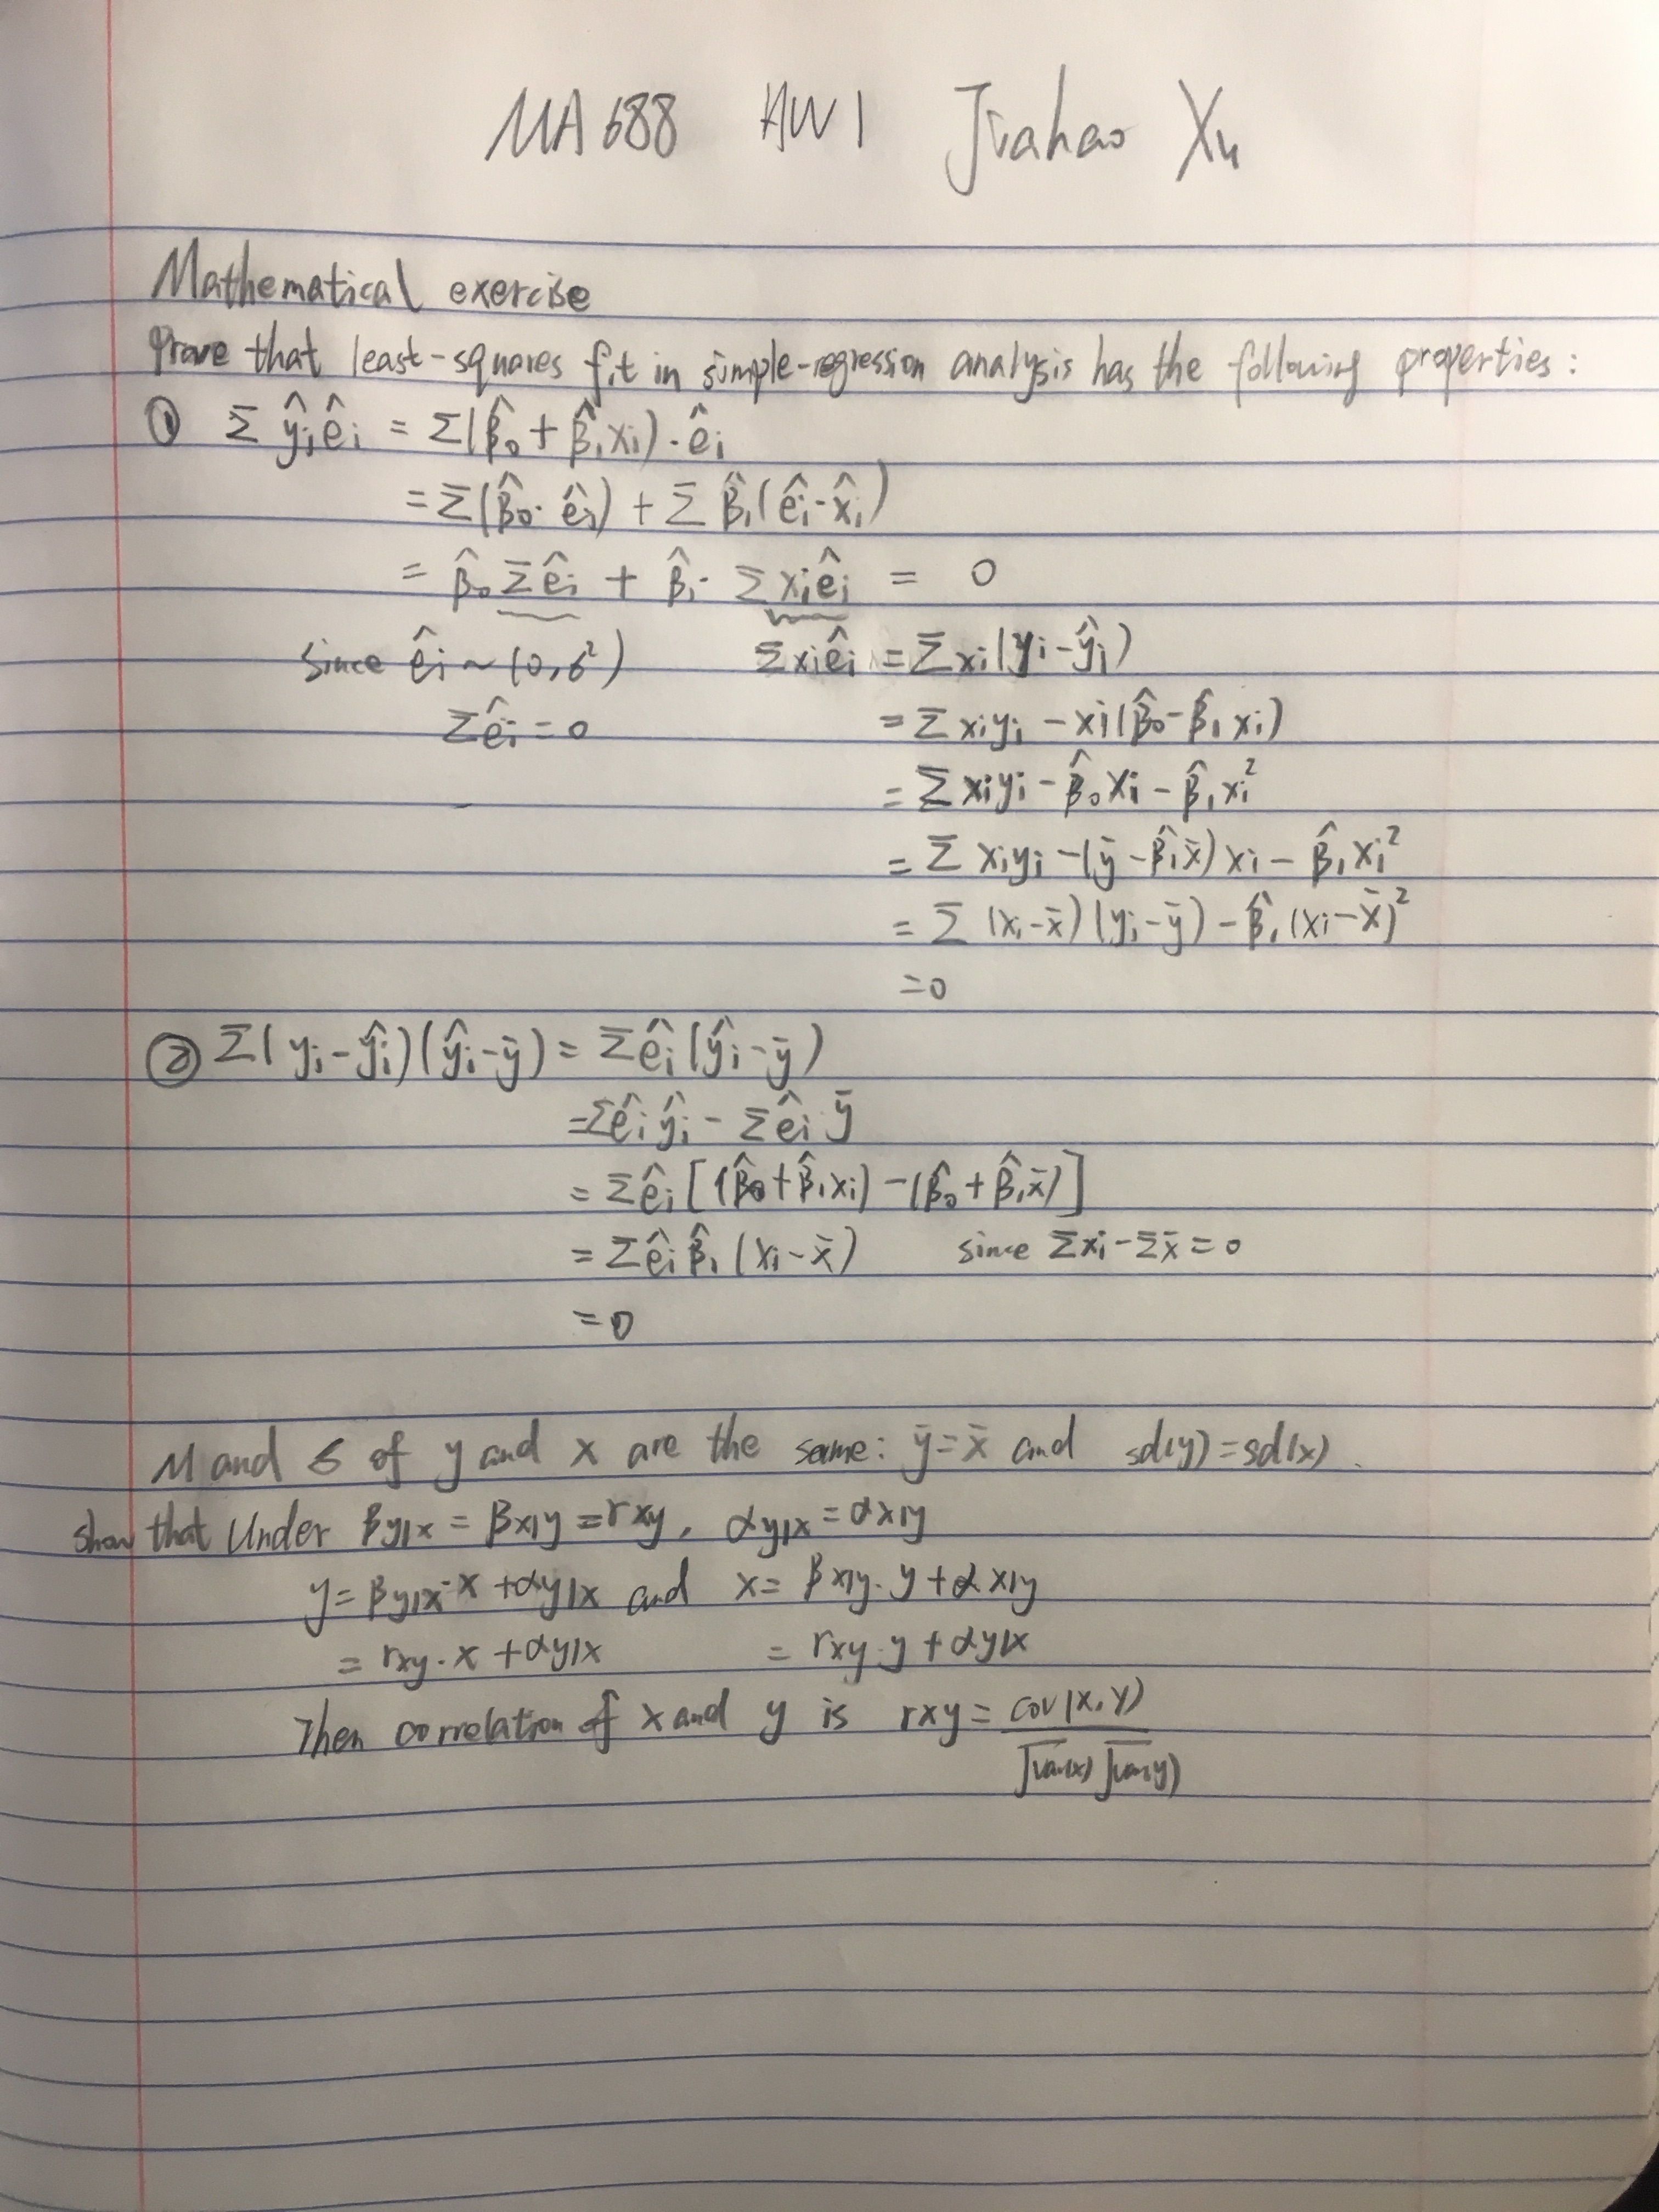 MA 688 HW 1 Jiahao Xu
Mathematical exercise
Prove that least-squares fit in simple-regression analysis has the following properties:
① Σ ŷᵢêᵢ = Σ(β̂₀ + β̂₁xᵢ)·êᵢ
= Σ(β̂₀·êᵢ) + Σ β̂₁(êᵢ·x̂ᵢ)
= β̂₀ Σêᵢ + β̂₁· Σxᵢêᵢ = 0
since êᵢ ~ (0, σ²) Σxᵢêᵢ = Σxᵢ(yᵢ-ŷᵢ)
Σêᵢ = 0 = Σ xᵢyᵢ - xᵢ(β̂₀-β̂₁xᵢ)
= Σ xᵢyᵢ - β̂₀xᵢ - β̂₁xᵢ²
= Σ xᵢyᵢ - (ȳ - β̂₁x̄)xᵢ - β̂₁xᵢ²
= Σ (xᵢ-x̄)(yᵢ-ȳ) - β̂₁(xᵢ-x̄)²
= 0
② Σ(yᵢ-ŷᵢ)(ŷᵢ-ȳ) = Σêᵢ(ŷᵢ-ȳ)
= Σêᵢŷᵢ - Σêᵢȳ
= Σêᵢ[(β̂₀+β̂₁xᵢ) - (β̂₀+β̂₁x̄)]
= Σêᵢβ̂₁(xᵢ-x̄) since Σxᵢ-Σx̄ = 0
= 0
M and σ of y and x are the same: ȳ=x̄ and sd(y)=sd(x).
show that Under βy|x = βx|y = rxy, αy|x = αx|y
y = βy|x·x + αy|x and x = βx|y·y + αx|y
= rxy·x + αy|x = rxy·y + αy|x
Then correlation of x and y is rxy = cov(x,y) / √var(x) √var(y)